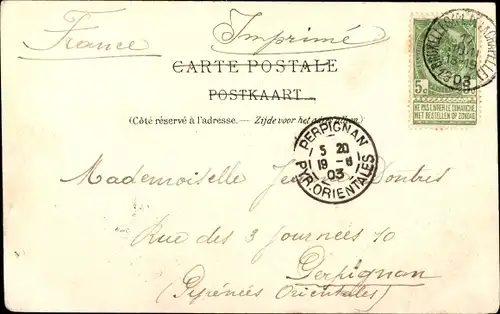 France
Imprimé
CARTE POSTALE
POSTKAART
(Côté réservé à l'adresse. — Zijde voor het
5c 5c
NE PAS LIVRER LE DIMANCHE
MET BESTELLEN OP ZONDAG
03
PERPIGNAN
5 20
19 -6
03
PYR. ORIENTALES
Mademoiselle
Rue des 3 journées 10
Perpignan
(Pyrénées Orientales)